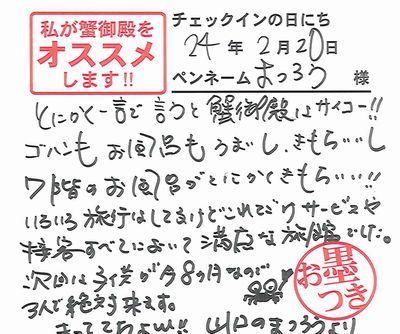 私が蟹御殿を
オススメ
します!!
チェックインの日にち
24年2月20日
ペンネーム まっろう 様
とにかく一言で言うと蟹御殿はサイコー!!
ゴハンもお風呂もうまし、きもちいいし
7階のお風呂がとにかくきもちいい!!
いろいろ旅行はしてるけどこれだけサービスや
接客すべてにおいて満足な旅館でした。
次回は子供が今8ヶ月なので
3人で絶対来ます。
まっててちょ!! 山口のまっろうより
お墨つき